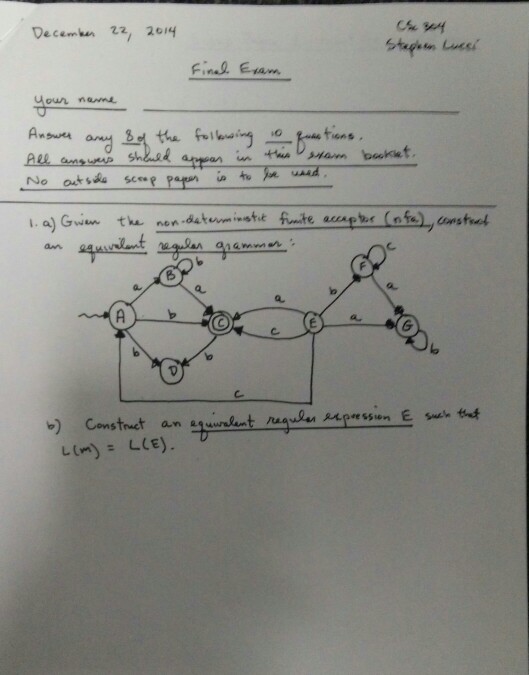 December 22, 2014
CSc 304
Stephen Lucci
Final Exam
Your name
Answer any 8 of the following 10 questions.
All answers should appear in this exam booklet.
No outside scrap paper is to be used.
1. a) Given the non-deterministic finite acceptor (nfa), construct
an equivalent regular grammar:
B b
F c
a a
b a
A b C
a
c
E a G
b
b D b
c
b) Construct an equivalent regular expression E such that
L(m) = L(E).